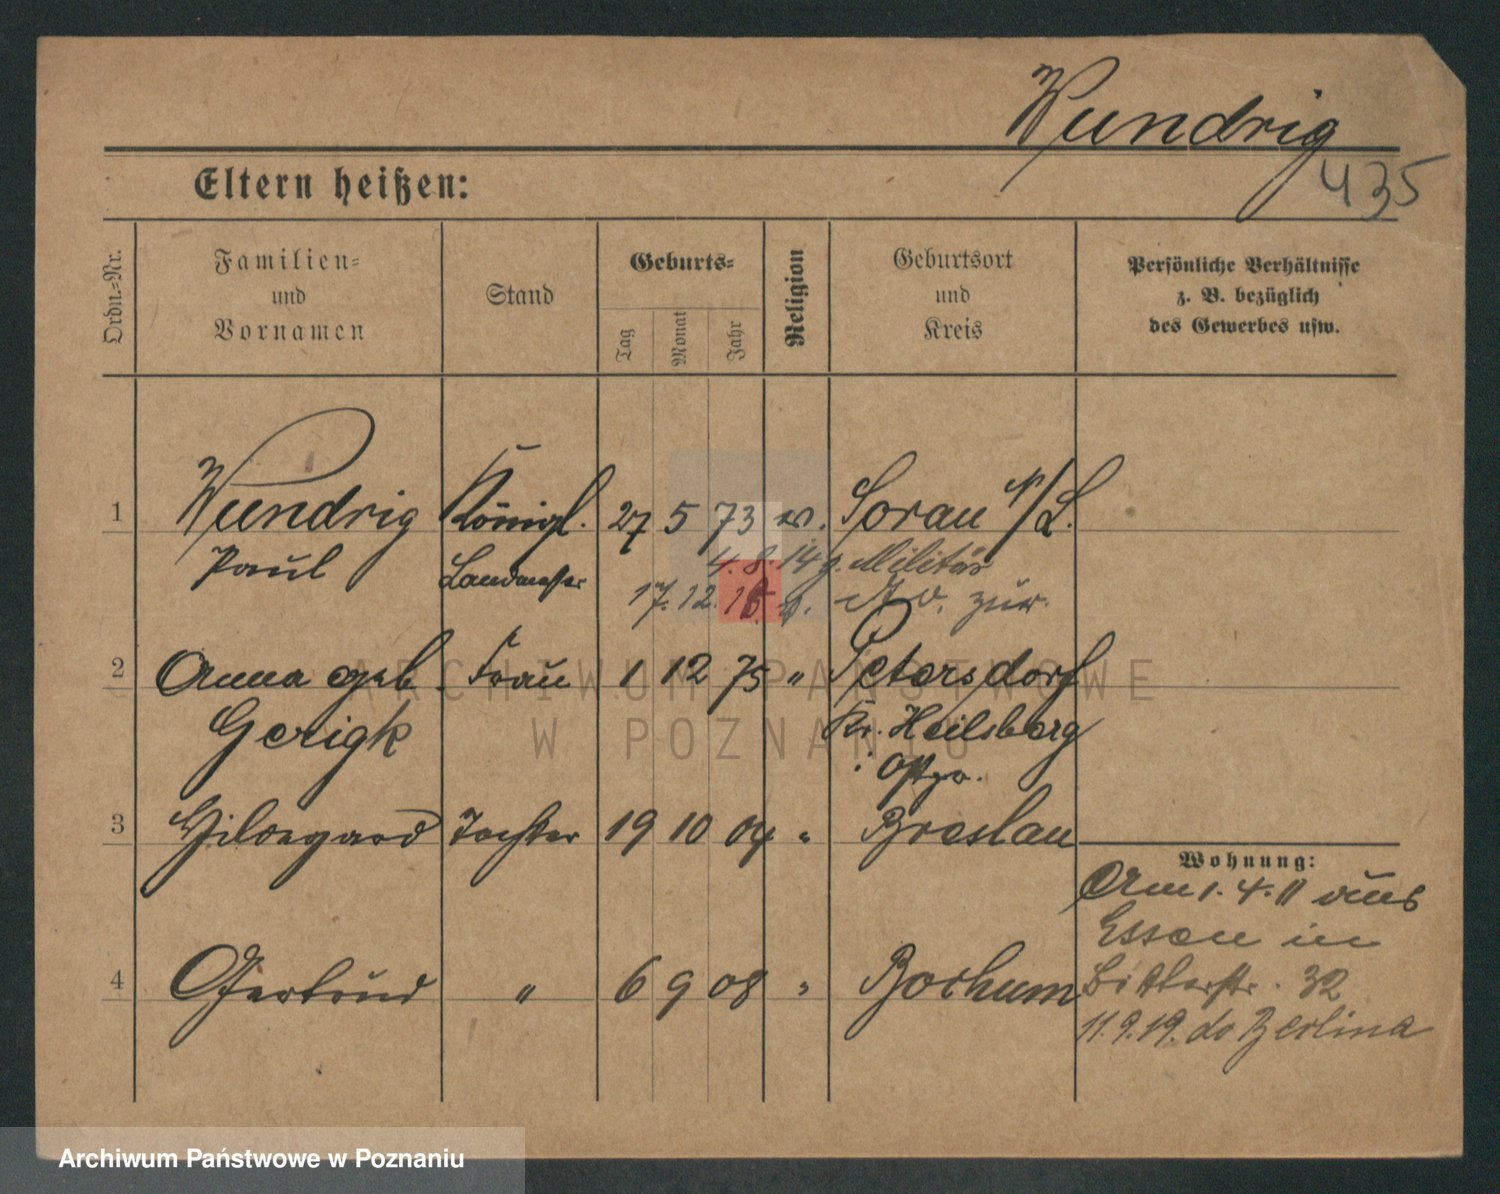 Wundrig
435
Eltern heißen:
Ordn.-Nr.
Familien-
und
Vornamen
Stand
Geburts-
Tag
Monat
Jahr
Religion
Geburtsort
und
Kreis
Persönliche Verhältnisse
z. B. bezüglich
des Gewerbes usw.
1 Wundrig Königl. 27 5 73 Sorau N/L.
Paul Landmesser 4.8.14 z. Militär
17.12. v. zur.
2 Anna geb. Frau 1 12 75 " Petersdorf
Gerigk Kr. Heilsberg
Ostpr.
3 Hildegard Tochter 19 10 04 " Breslau
Wohnung:
Am 1.4.11 aus
Essen in
4 Gertrud " 6 9 08 " Bochum
Bitterstr. 32
11.9.19. do Berlina
ARCHIWUM PAŃSTWOWE
W POZNANIU
Archiwum Państwowe w Poznaniu